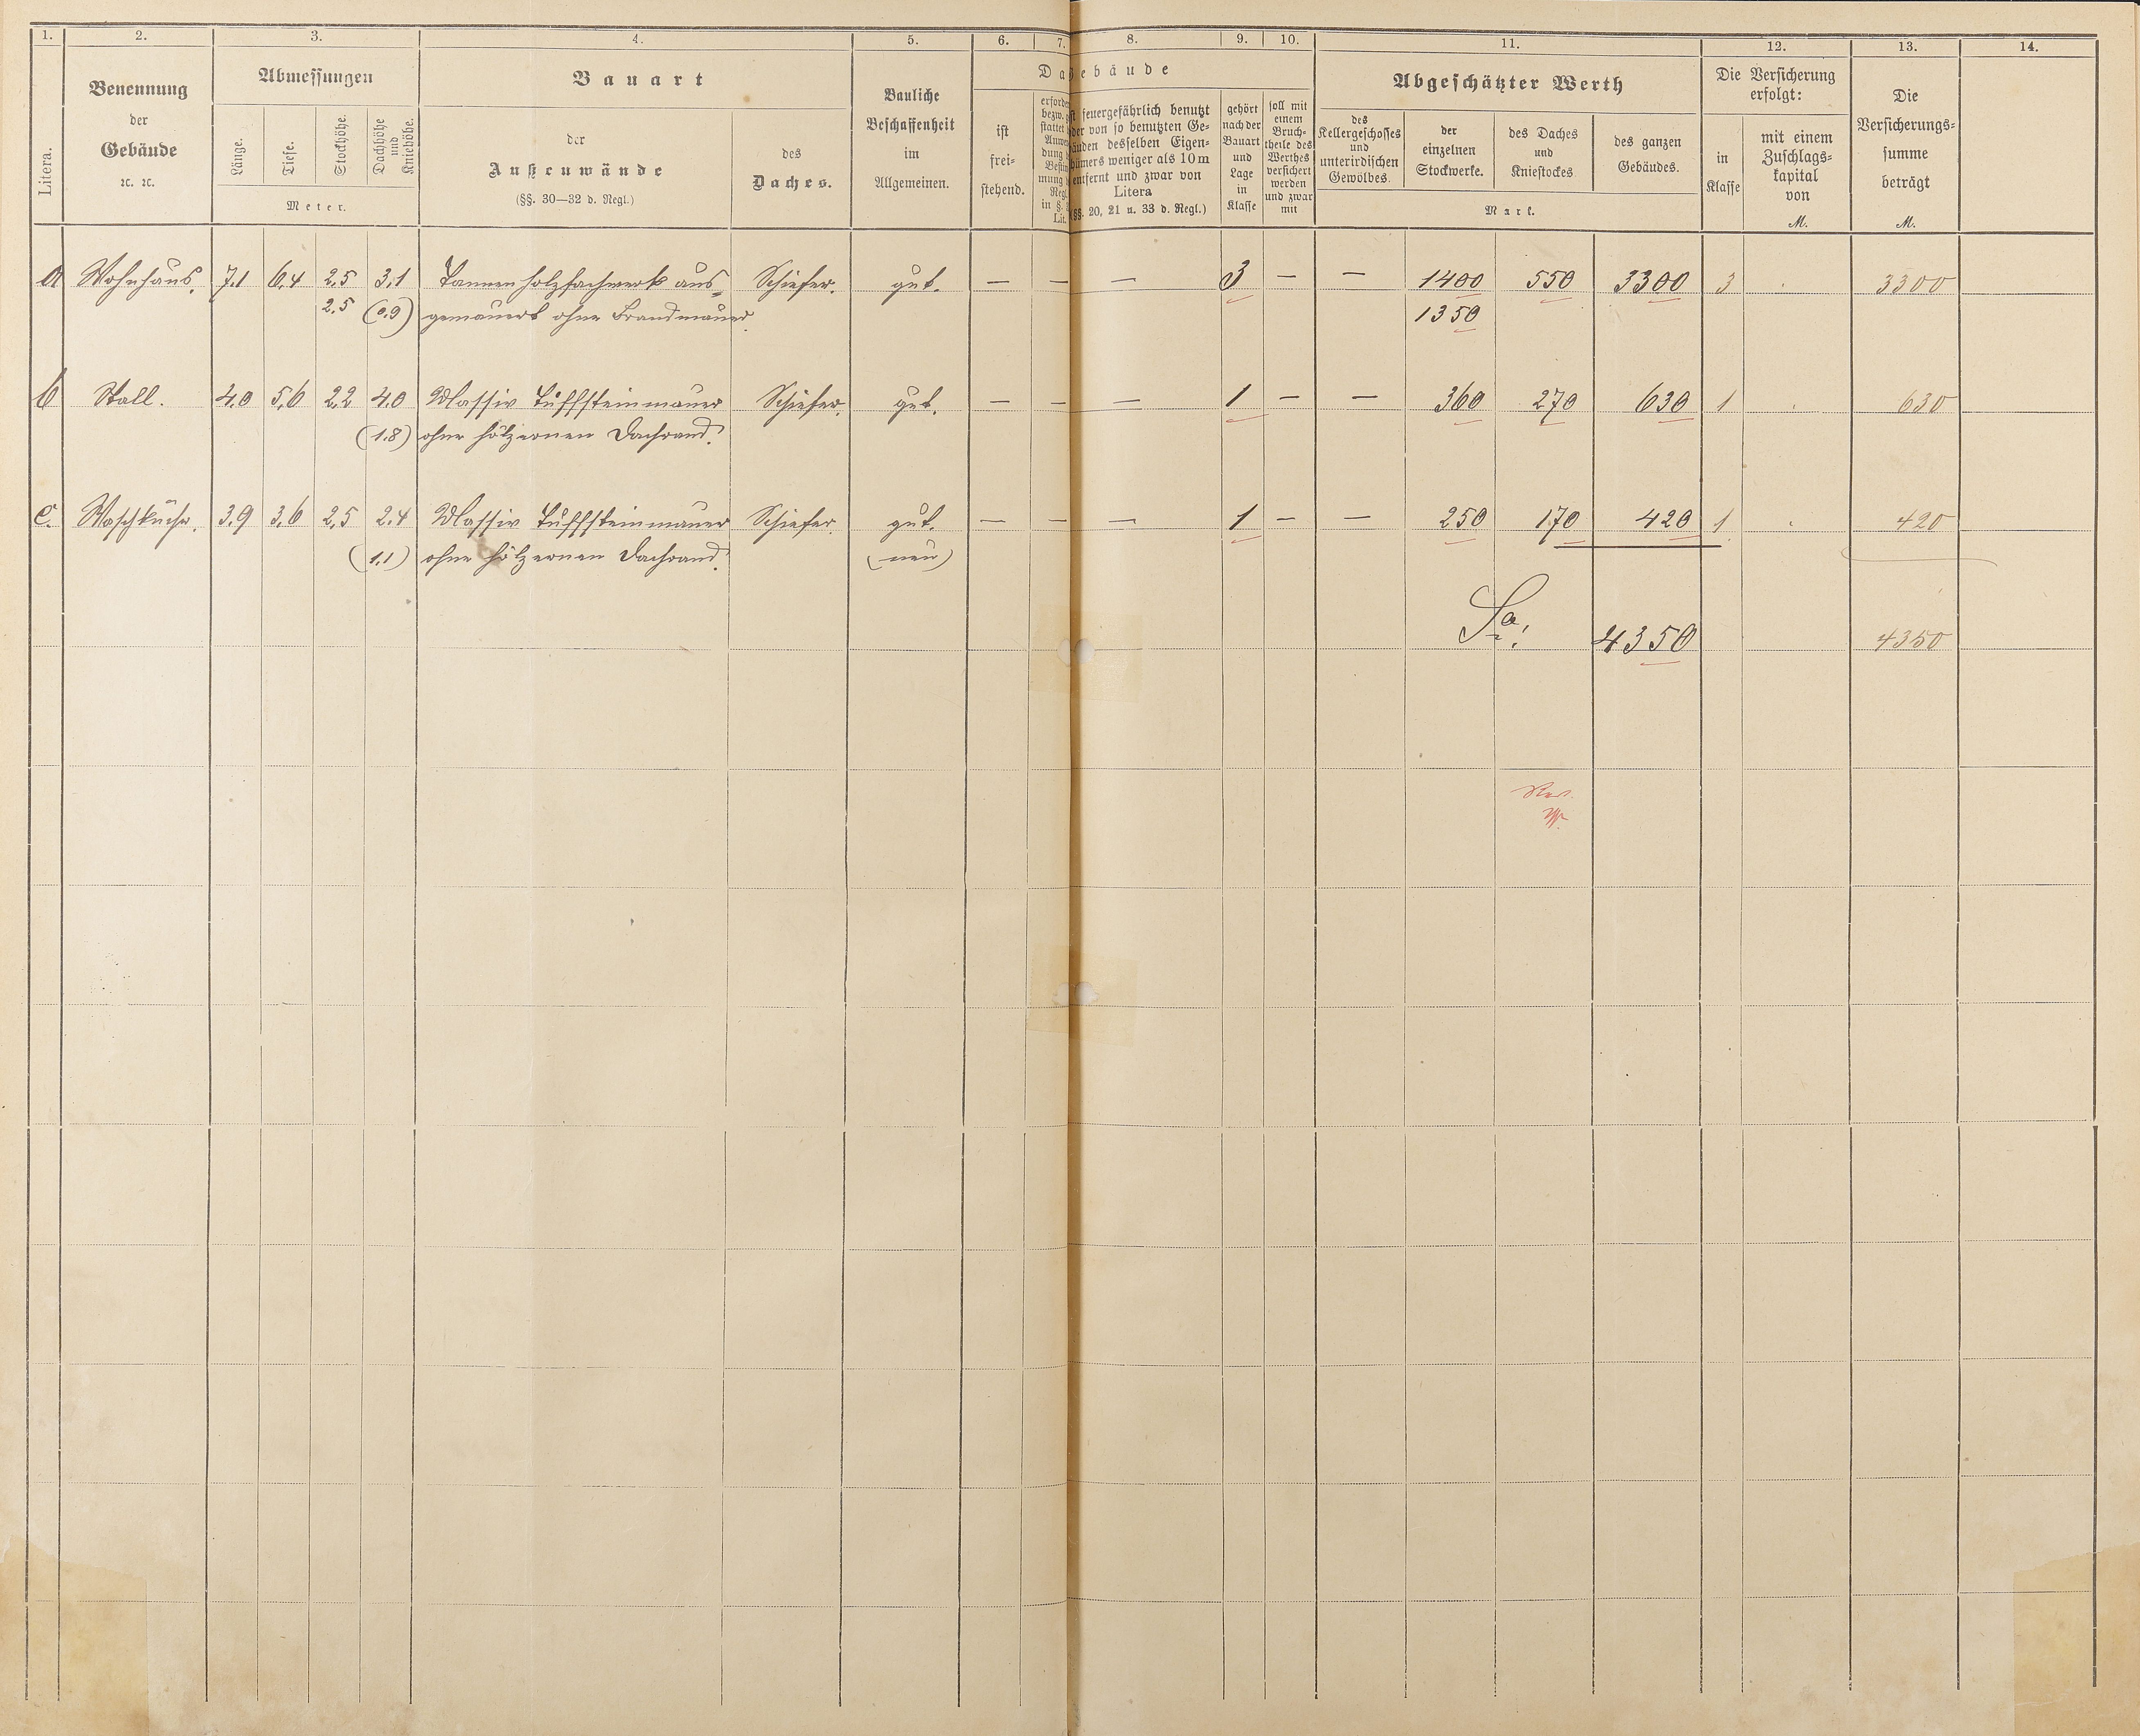 1. 2. 3. 4. 5. 6. 7. 8. 9. 10. 11. 12. 13. 14.
Litera.
Benennung
der
Gebäude
ꝛc. ꝛc.
Abmessungen
Länge.
Tiefe.
Stockhöhe.
Dachhöhe
und
Kniehöhe.
Meter.
Bauart
der
Außenwände
(§§. 30—32 d. Regl.)
des
Daches.
Bauliche
Beschaffenheit
im
Allgemeinen.
Da
ebäude
ist
frei-
stehend.
erforder
bezw. g
stattet
Anwen
dung
Bestim
mung
Regl.
in §.
Lit.
feuergefährlich benutzt
oder von so benutzten Ge-
äuden desselben Eigen-
thümers weniger als 10 m
entfernt und zwar von
Litera
(§§. 20, 21 u. 33 d. Regl.)
gehört
nach der
Bauart
und
Lage
in
Klasse
soll mit
einem
Bruch-
theile des
Werthes
versichert
werden
und zwar
mit
Abgeschätzter Werth
des
Kellergeschosses
und
unterirdischen
Gewölbes.
der
einzelnen
Stockwerke.
des Daches
und
Kniestockes
des ganzen
Gebäudes.
Mark.
Die Versicherung
erfolgt:
in
Klasse
mit einem
Zuschlags-
kapital
von
M.
Die
Versicherungs-
summe
beträgt
M.
a Wohnhaus. 7,1 6,4 2,5 3,1 Tannenholzfachwerk aus- Schiefer. gut. — — — 3 — — 1400 550 3300 3 . 3300
2,5 (0.9) gemauert ohne Brandmauer. 1350
b Stall. 4,0 5,6 2,2 4,0 Massiv Tuffsteinmauer Schiefer. gut. — — — 1 — — 360 270 630 1 . 630
(1.8) ohne hölzernen Dachrand.
c. Waschküche. 3,9 3,6 2,5 2.4 Massiv Tuffsteinmauer Schiefer. gut. — — — 1 — — 250 170 420 1 . 420
(1.1) ohne hölzernen Dachrand. (neu)
Sa: 4350 4350